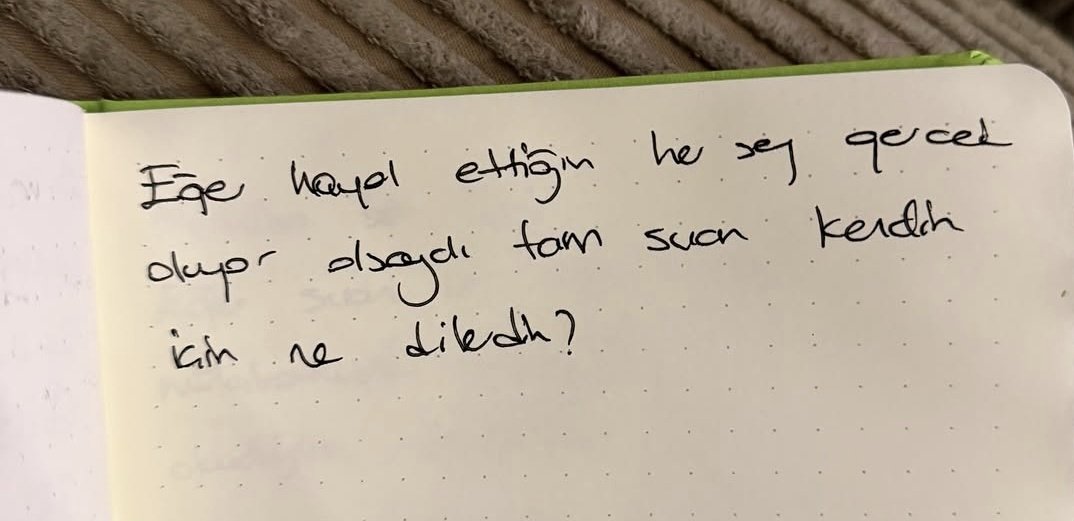 Eğer hayal ettiğin he şey gerçek
oluyor olsaydı tam şuan kendin
için ne diledin?